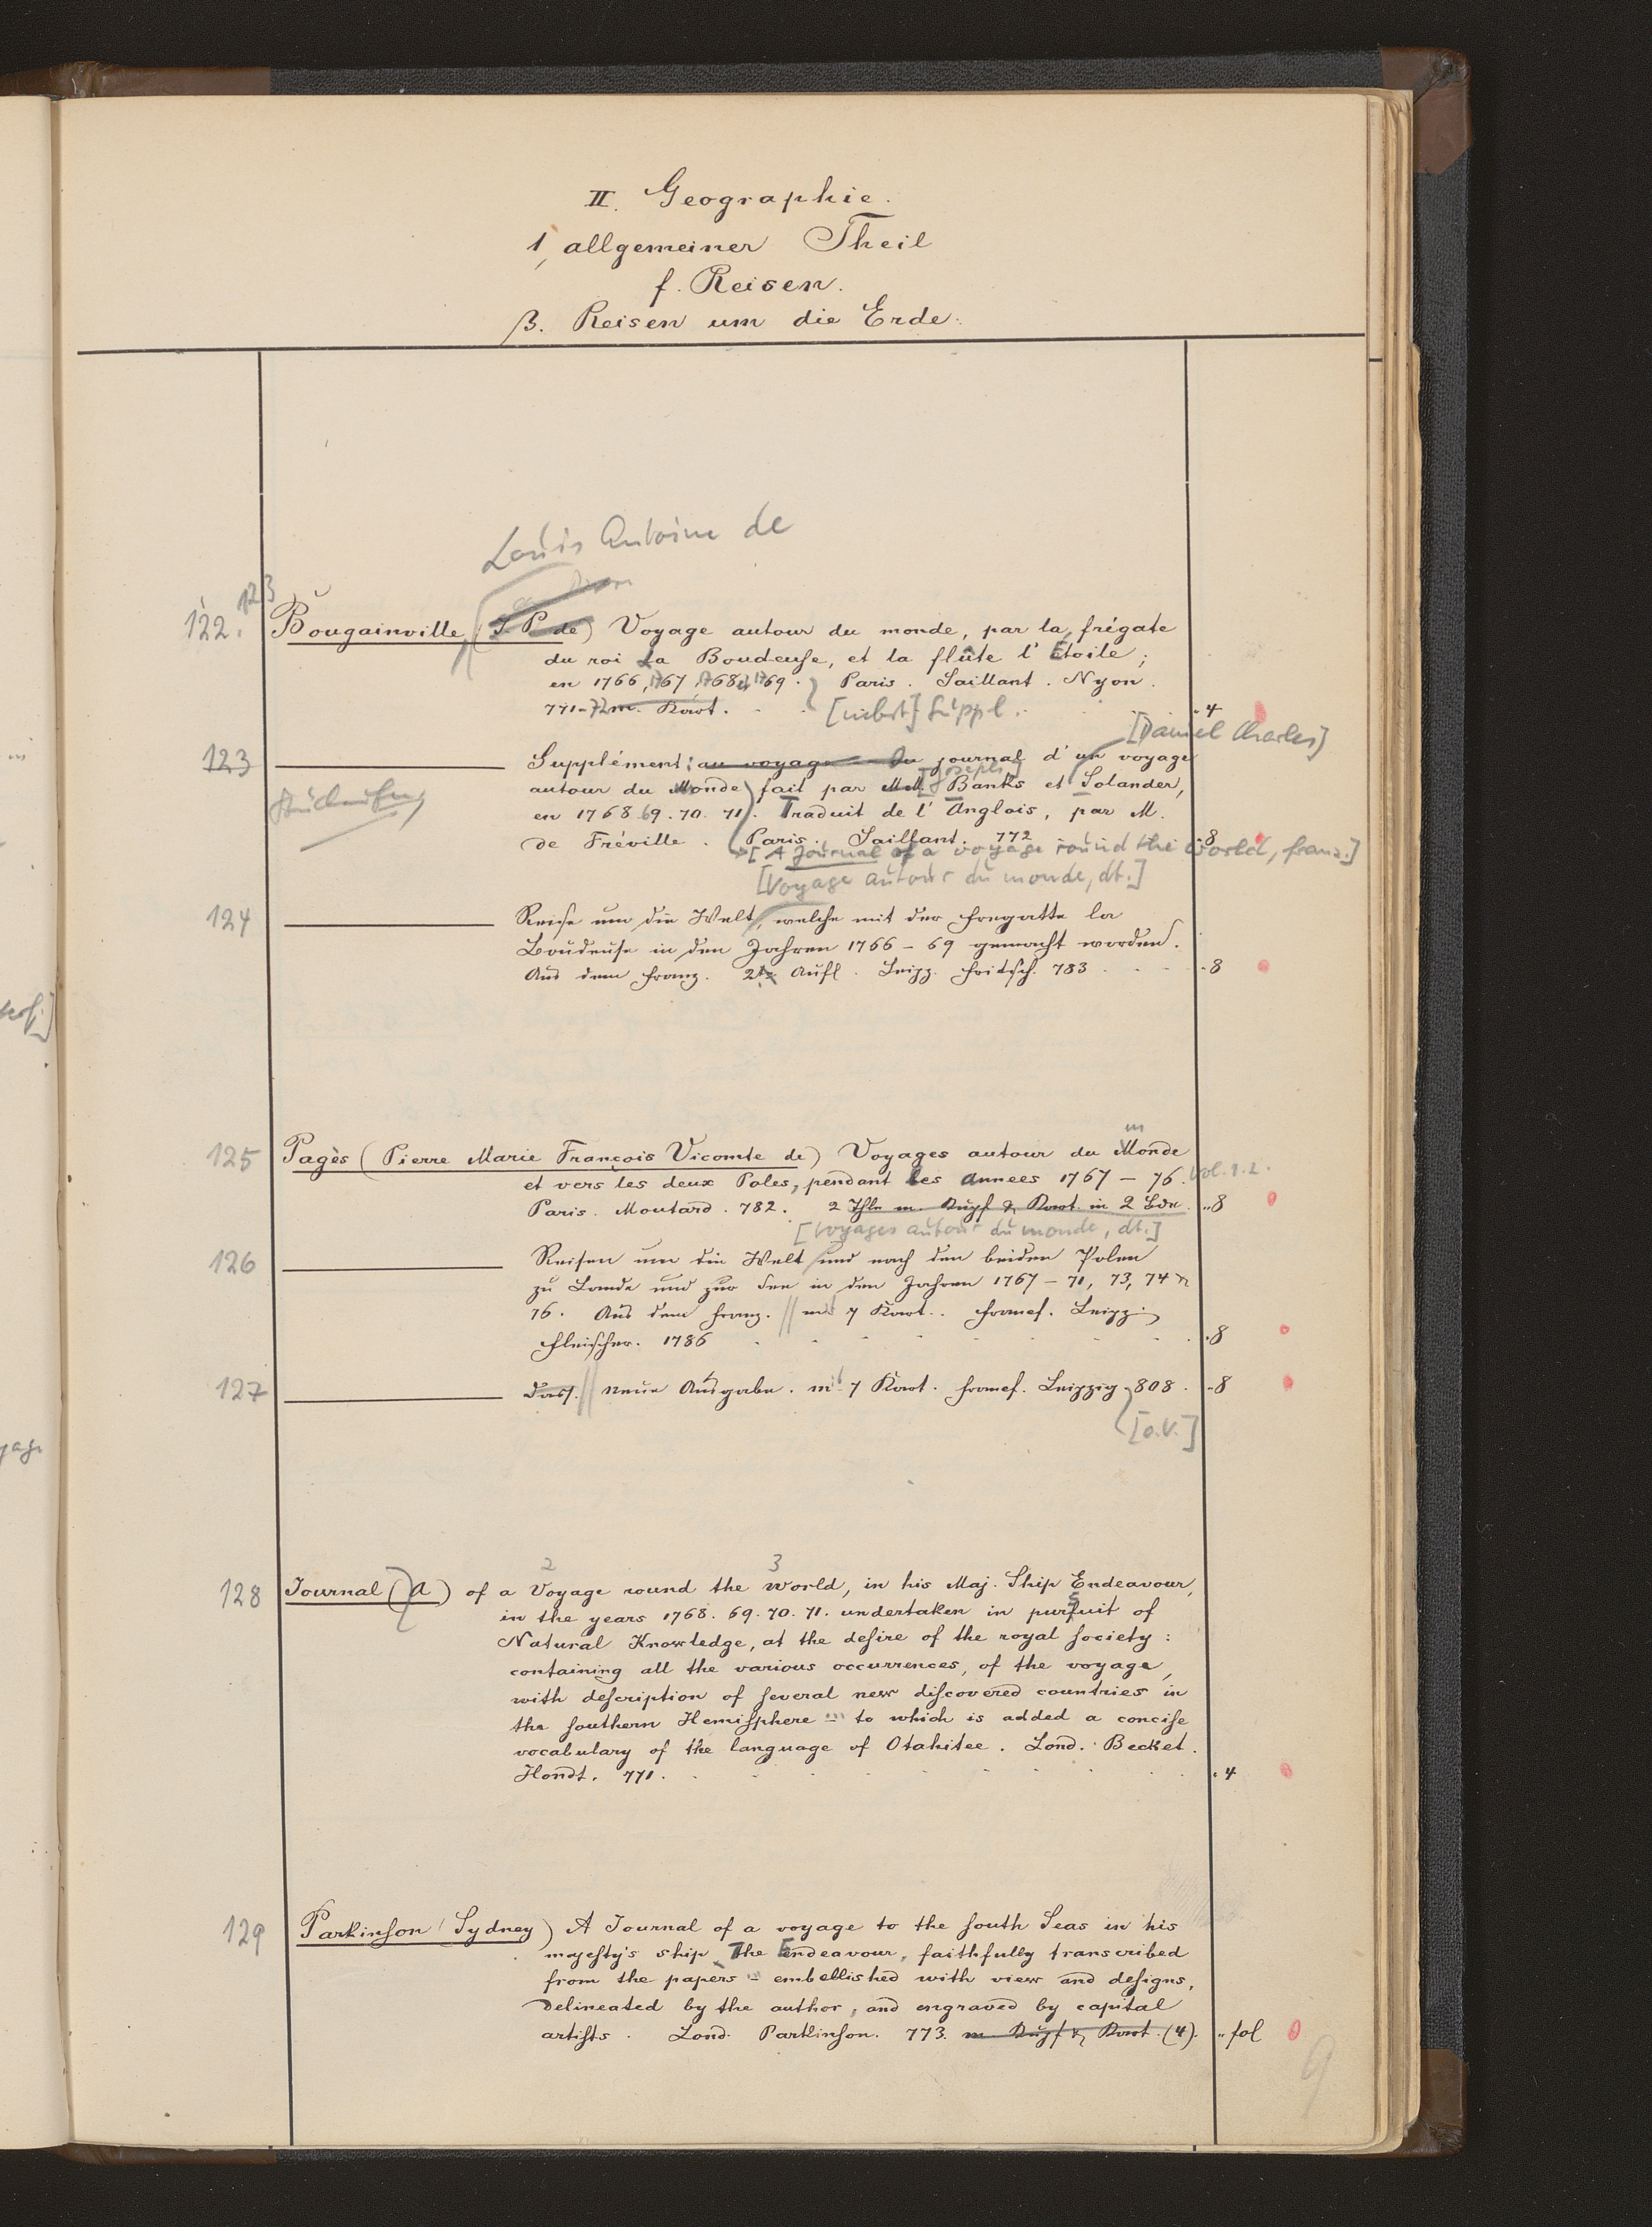 II. Geographie.
1, allgemeiner Theil
f. Reisen.
β. Reisen um die Erde.
Louis Antoine de
123
122. Bougainville (J. P. de) Voyage autour du monde, par la frégate
du roi La Boudeuse, et la flûte l'Etoile;
en 1766, 1767, 1768 et 1769. Paris. Saillant. Nyon.
771-72 m. Kart. [nebst] Suppl. 4
[Daniel Charles]
123 Supplément: au voyage - Du journal d'un voyage
[Joseph]
autour du Monde fait par MM. Banks et Solander,
Stücknung
en 1768. 69. 70. 71. Traduit de l'Anglois, par M.
de Fréville. Paris. Saillant. 772 8
[A Journal of a voyage round the world, franz.]
[Voyage autour du monde, dt.]
124 Reise um die Welt, welche mit der Fregatte la
Boudeuse in den Jahren 1766-69 gemacht worden.
Aus dem Franz. 2te Aufl. Leipz. Fritsch. 783 8
m
125 Pagès (Pierre Marie François Vicomte de) Voyages autour du Monde
et vers les deux Poles, pendant les Annees 1767-76. Vol. 1.2.
Paris. Moutard. 782. 2 Thle m. Kupf & Kart. in 2 Bdn. 8
[Voyages autour du monde, dt.]
126 Reisen um die Welt und nach den beiden Polen
zu Lande und zur See in den Jahren 1767-71, 73, 74 &
76. Aus dem Franz. mit 7 Kart. Francf. Leipz.
Fleischer. 1786 8
127 Dass. Neue Ausgabe. mit 7 Kart. Francf. Leipzig 808. 8
[o.V.]
2 3
128 Journal (A) of a Voyage round the World, in his Maj. Ship Endeavour,
in the years 1768. 69. 70. 71. undertaken in pursuit of
Natural Knowledge, at the desire of the royal society:
containing all the various occurrences, of the voyage,
with description of several new discovered countries in
the southern Hemisphere - to which is added a concise
vocabulary of the language of Otahitee. Lond. Becket.
Hondt. 771. 4
129 Parkinson (Sydney) A Journal of a voyage to the south Seas in his
majesty's ship The Endeavour, faithfully transcribed
from the papers - embellished with view and designs,
Delineated by the author, and engraved by capital
artists. Lond. Parkinson. 773. m Kupf & Kart. (4). fol
9